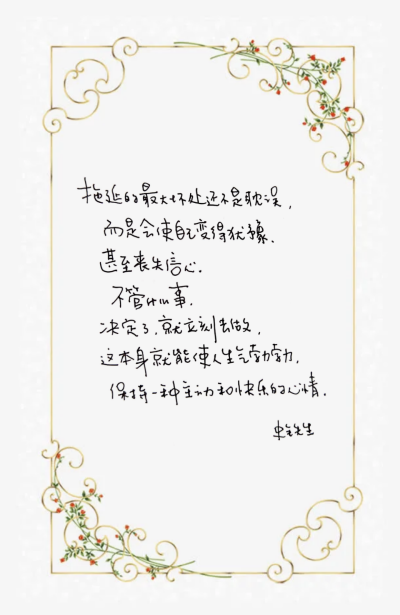 拖延的最大坏处还不是耽误,
而是会使自己变得犹豫.
甚至丧失信心.
不管什么事.
决定了,就立刻去做,
这本身就能使人生气勃勃,
保持一种主动和快乐的心情.
史铁生